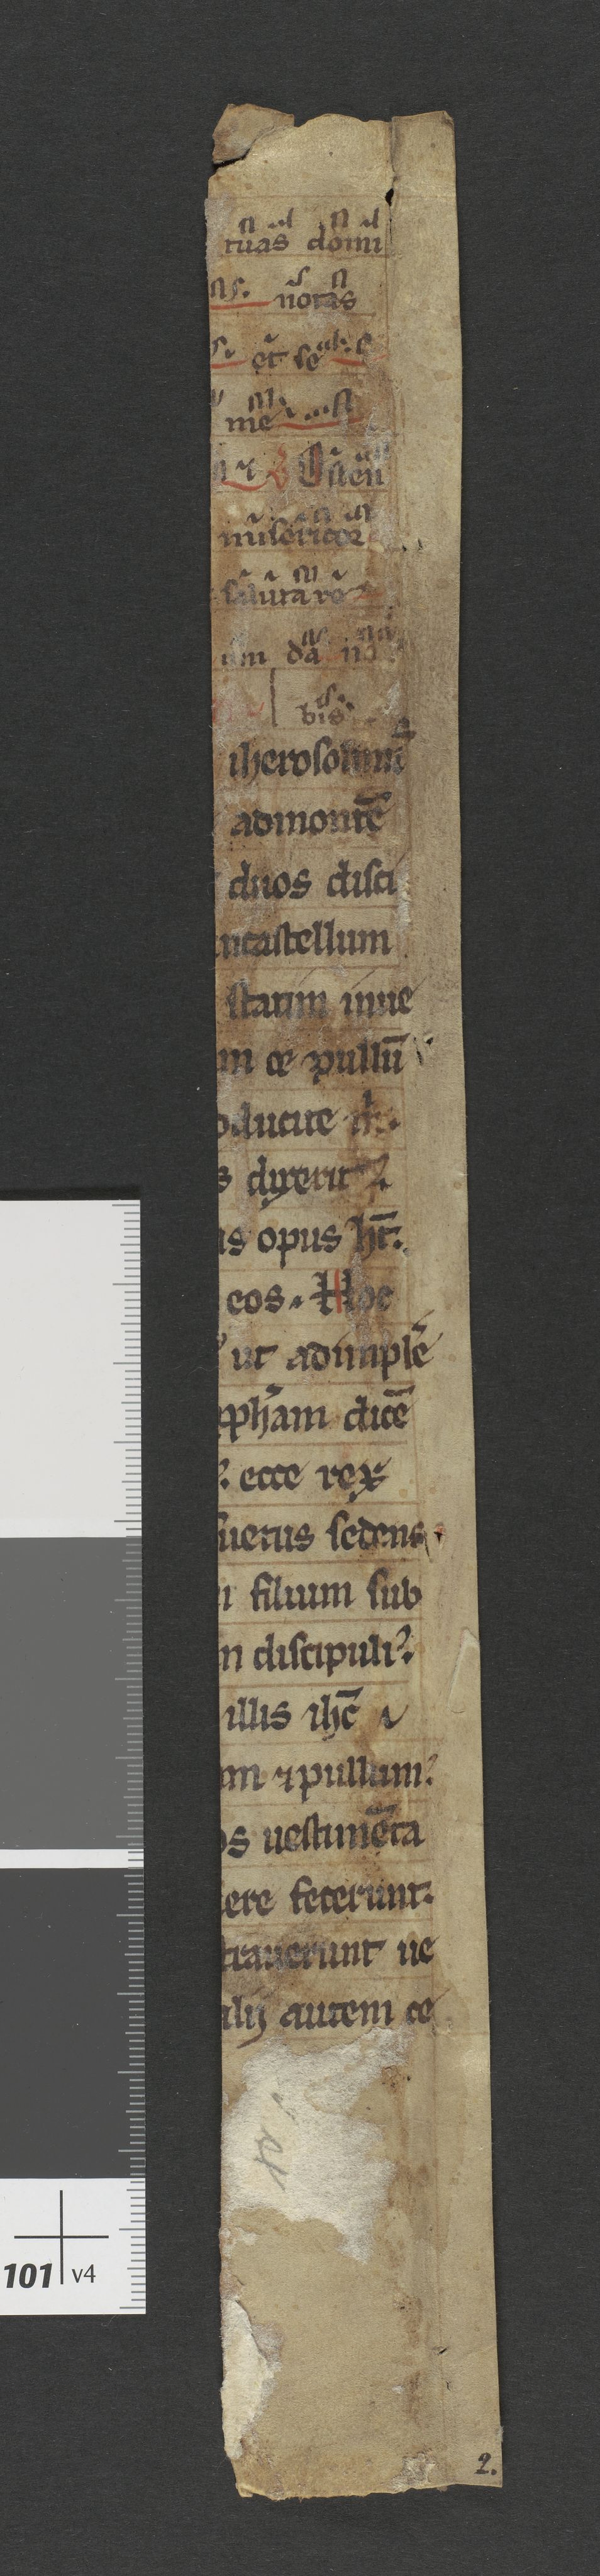 tuas domi
notas
et se
me
V Osten
misericor
salutare
um da no
bis
iherosolimis
admontē
duos disci
incastellum
statim inue
m ce pullū
oducite m.
s dixerit?
is opus ht.
eos. Hoc
ut adimplē
pham dicē
ecce rex
suetus sedens
i filium sub
n discipuli?
illis ihc
am ⁊ pullum?
os uestimēta
ere fecerunt.
trauerunt ue
alij autem ce
2.
101 v4